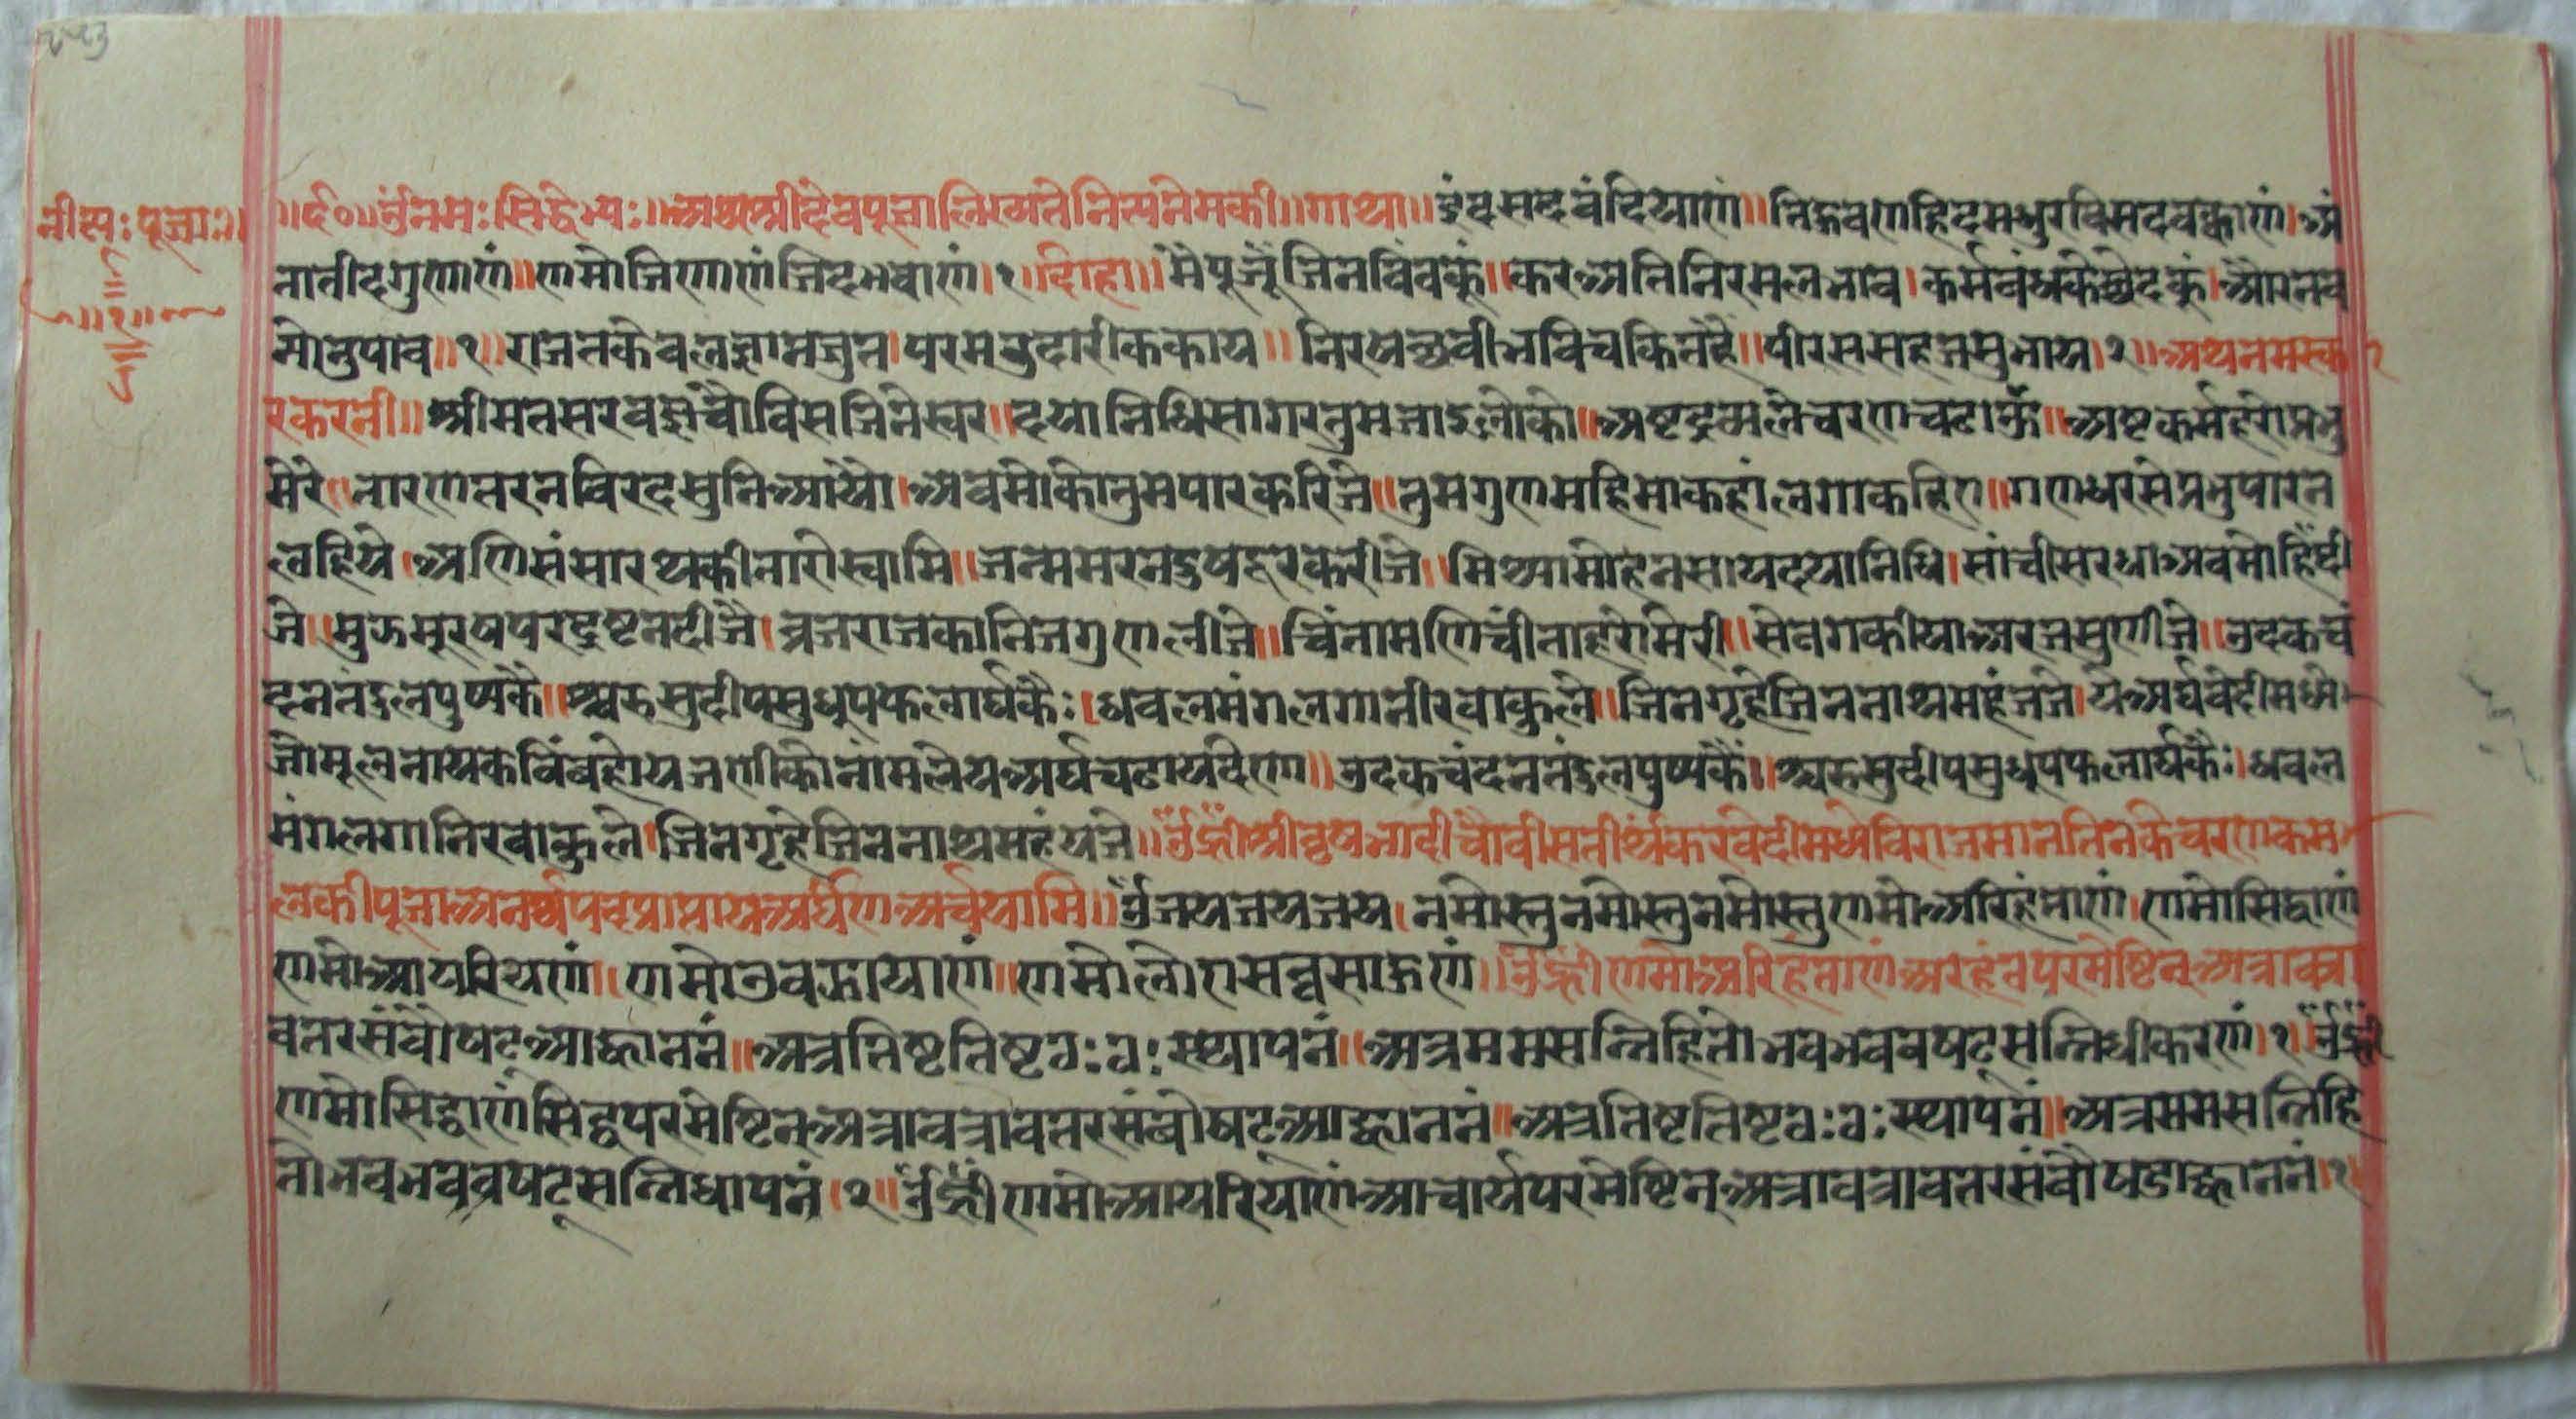 नीत्यः पूजाः२।
॥र्द०॥ ॐनमःसिद्धेभ्यः॥अथश्रीदेवपूजालिख्यतेनित्यनेमकी॥गाथा॥इंदसदवंदियाणं॥तिहुवणहिदमधुरविसदवक्काणं।अं
नातीदगुणाणं॥णमोजिणाणंजिदभवाणं।१॥दोहा॥मैपूजूंजिनबिंबकूं॥करअतिनिरमलभाव।कर्मबंधकेछेदकुं।औरनब
मोनुपाव॥१॥राजतकेवलज्ञानजुत।परमवुदारीककाय॥निरषछवीभविचकितहै॥पीरससहजसुभाय।२॥अथनमस्का
रकरनी॥श्रीमतसरवज्ञचौविसजिनेस्वर॥दयानिधिसागरतुमजाङलोको॥अष्टद्रव्यलेचरणचढाऊँ॥अष्टकर्महरोप्रभु
मेरे॥तारणतरनविरदसुनिआयो।अबमोकोतुमपारकरिजे॥तुमगुणमहिमाकहांलगाकहिए॥गणधरसेप्रभुपारन
लहिये।अणिसंसारथकीतारोस्वामि॥जन्ममरनदुषदूरकरीजे॥मिथ्यामोहनसायदयानिधि।सांचीसरधाअबमोहिदी
जे॥मुऊमूरषपरद्रुष्टनदीजै।व्रजराजकानिजगुणलीजे॥चिंतामणिचींताहरोमेरी॥सेवगकीयाअरजसुणीजे॥उदकचं
दनतंदुलपुष्पकै॥श्चरुसुदीपसुधूपफलार्घकैः।धवलमंगलगानीरवाकुले॥जिनगृहेजिननाथमहंजजे।येअर्घवेदीमधे
जोमूलनायकबिंबहोयजणीकोनांमलेयअर्घचढायदेणा॥उदकचंदनतंदुलपुष्पकैं॥श्चरुसुदीपसुधूपफलार्घकैः।धवल
मंगलगानिरवाकुले।जिनगृहेजिननाथमहंयजे॥ॐह्रींश्रीवृषभादीचौवीसतीर्थंकरवेदीमधेविराजमानतिनकेचरणकम
लकीपूजाअनर्घपदप्राप्तायअर्घणअर्चयामि॥ॐजयजयजय।नमोस्तुनमोस्तुनमोस्तुणमोअरिहंताणं।णमोसिद्धाणं
णमोआयरियणं॥णमोउवझायाणं॥णमोलोएसव्वसाऊणं॥ॐह्रींणमोअरिहंताणंअरहंतपरमेष्टिन्अत्रावत्रा
वतरसंवौषट्आह्वाननं॥अत्रतिष्टतिष्टठःठःस्थापनं॥अत्रममसन्निहितोभवभववषट्सन्निधीकरणं।१॥ॐह्रीं
णमोसिद्धाणंसिद्धपरमेष्टिन्अत्रावत्रावतरसंबौषट्आह्वाननं॥अत्रतिष्टतिष्टठःठःस्थापनं॥अत्रममसन्निहि
तोभवभववषट्सन्निधापनं।२॥ॐह्रींणमोआयरियाणंआचार्यपरमेष्टिन्अत्रावत्रावतरसंवौषडाह्वाननं।१